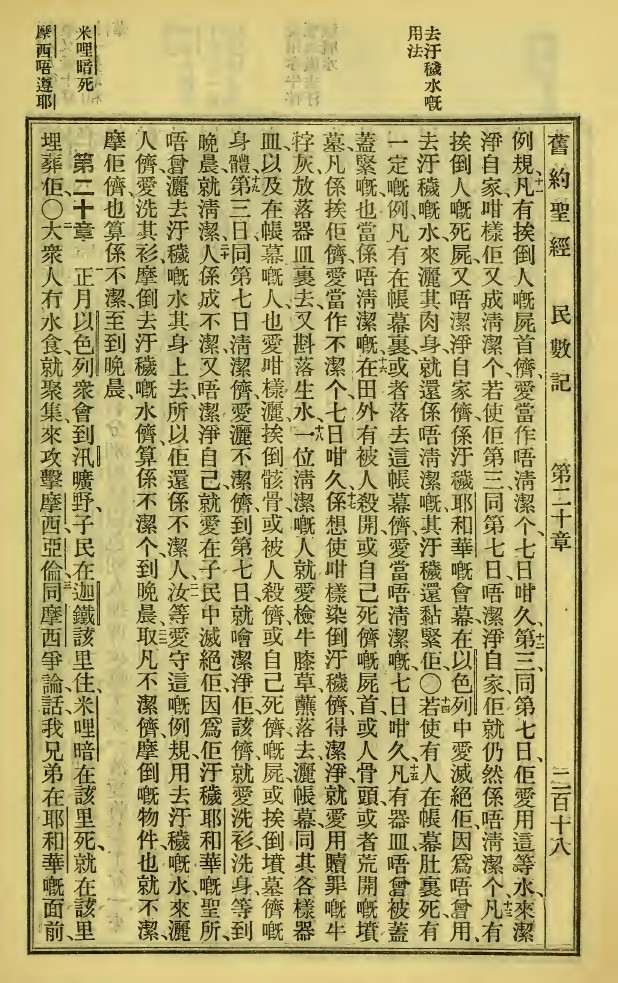 去汙穢水嘅
用法
米哩暗死
摩西唔遵耶
舊約聖經 民數記 第二十章 二百十八
例規、十一凡有挨倒人嘅屍首儕、愛當作唔清潔个、七日咁久、十二第三、同第七日、佢愛用這等水、來潔
淨自家、咁樣佢又成清潔个、若使佢第三同第七日、唔潔淨自家、佢就仍然係唔清潔个、十三凡有
挨倒人嘅死屍、又唔潔淨自家儕、係汙穢耶和華嘅會幕、在以色列中愛滅絕佢、因爲唔曾用
去汙穢嘅水來灑其肉身、就還係唔清潔嘅、其汙穢還黏緊佢、〇十四若使有人在帳幕肚裏死、有
一定嘅例、凡有在帳幕裏、或者落去這帳幕儕、愛當唔清潔嘅、七日咁久、十五凡有器皿唔曾被蓋
蓋緊嘅、也當係唔清潔嘅、十六在田外有被人殺開、或自己死儕嘅屍首、或人骨頭、或者荒開嘅墳
墓、凡係挨佢儕、愛當作不潔个、七日咁久、十七係想使咁樣染倒汙穢儕得潔淨、就愛用贖罪嘅牛
牸灰、放落器皿裏去、又斟落生水、十八一位清潔嘅人、就愛檢牛膝草蘸落去、灑帳幕、同其各樣器
皿、以及在帳幕嘅人、也愛咁樣灑挨倒骸骨、或被人殺儕、或自己死儕嘅屍、或挨倒墳墓儕嘅
身體、十九第三日、同第七日、清潔儕愛灑不潔儕、到第七日就噲潔淨佢、該儕就愛洗衫、洗身、等到
晚晨就清潔、二十人係成不潔、又唔潔淨自己、就愛在子民中滅絕佢、因爲佢汙穢耶和華嘅聖所、
唔曾灑去汙穢嘅水其身上去、所以佢還係不潔人、二一汝等愛守這嘅例規、用去汙穢嘅水來灑
人儕、愛洗其衫、摩倒去汙穢嘅水儕、算係不潔个、到晚晨、二二取凡不潔儕摩倒嘅物件、也就不潔、
摩佢儕也算係不潔、至到晚晨、
第二十章 一正月以色列衆會到汛曠野、子民在迦鐵該里住、米哩暗在該里死、就在該里
埋葬佢、〇二大衆人冇水食、就聚集來攻擊摩西、亞倫、三同摩西爭論、話、我兄弟在耶和華嘅面前、